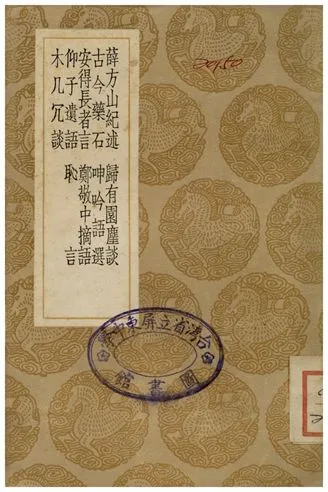 薛方山紀述　歸有園麈談
古今藥石　呻吟語選
安得長者言　鄭敬中摘語
仰子遺語　恥言
木几冗談
台灣省立屏東中學
圖書館